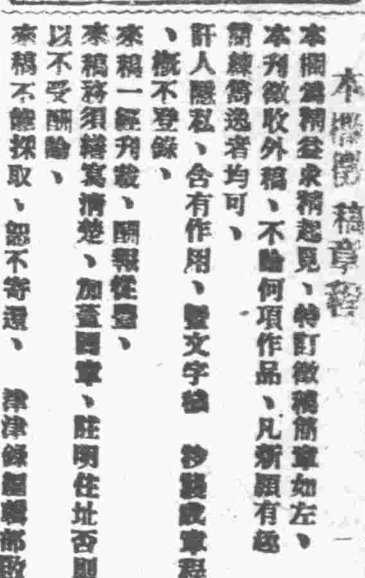 本欄徵稿章程
本欄為精益求精起見、特訂徵稿簡章如左、
本刊徵收外稿、不論何項作品、凡新穎有趣
簡練雋逸者均可、
訐人隱私、含有作用、暨文字穢　抄襲成章
、概不登錄、
來稿一經刊載、酬報從豐、
來稿務須繕寫清楚、加蓋圖章、註明住址否則
以不受酬論、
來稿不能採取、恕不寄還、　津津錄編輯部啟